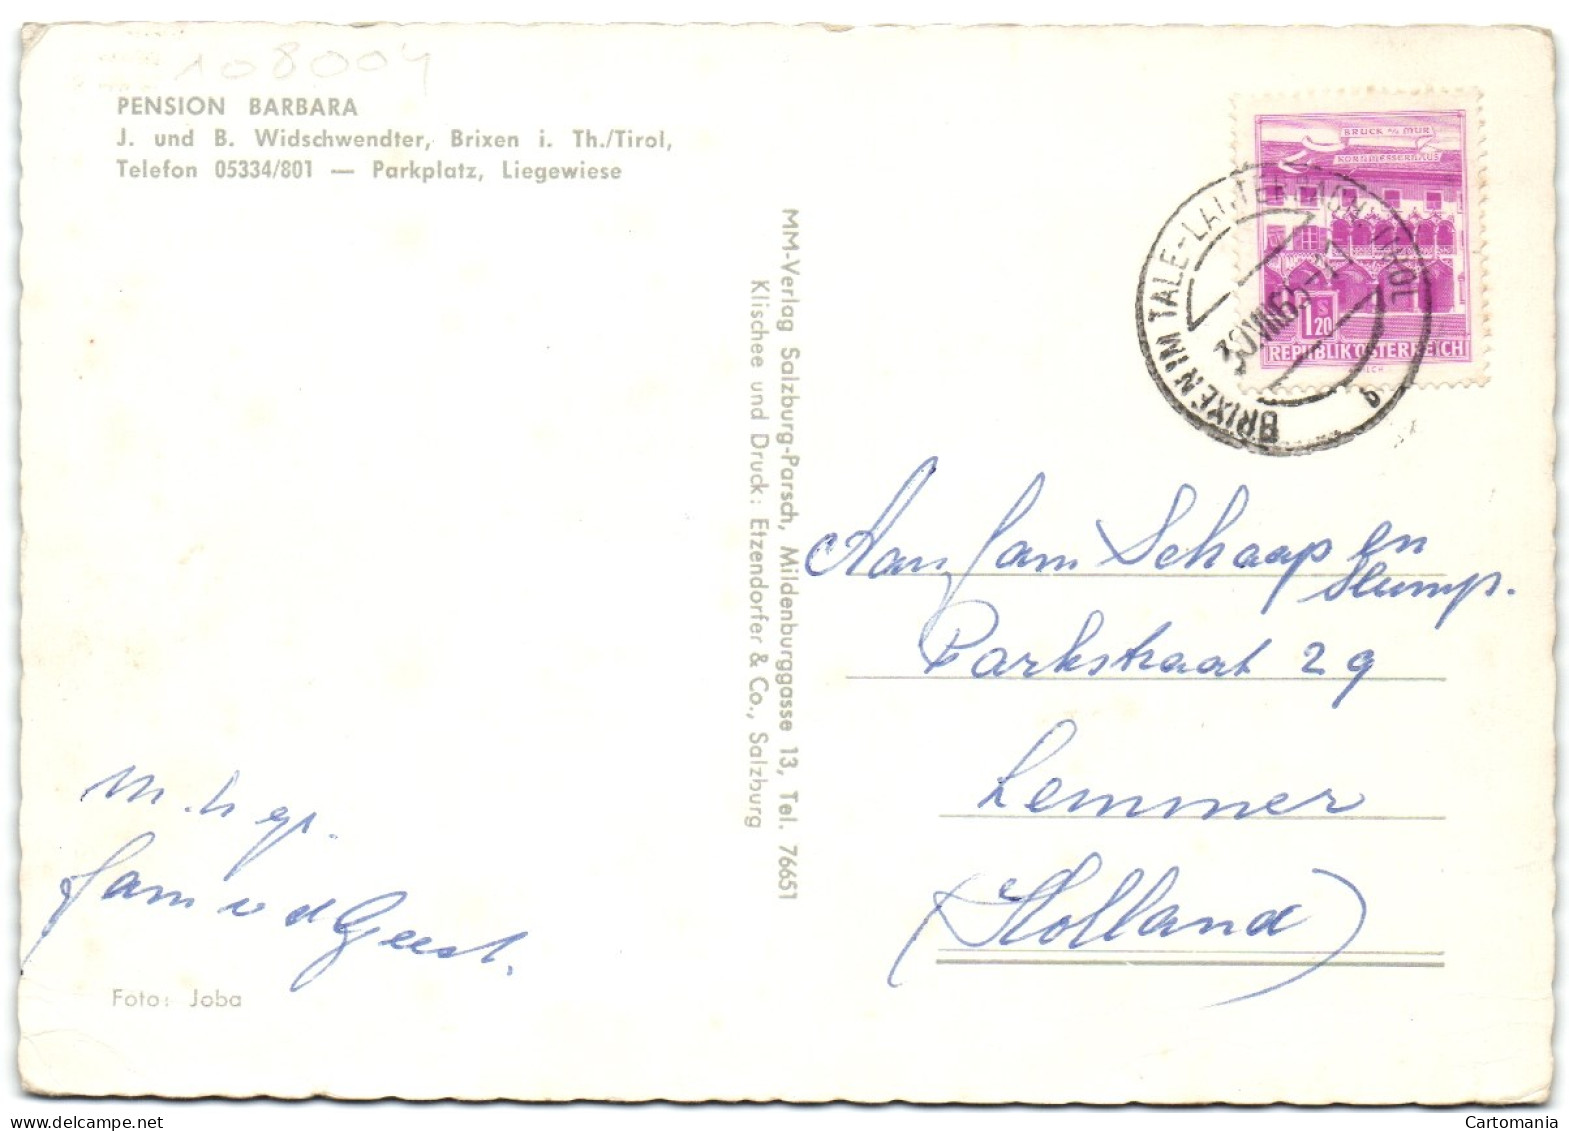 108004
PENSION BARBARA
J. und B. Widschwendter, Brixen i. Th./Tirol,
Telefon 05334/801 — Parkplatz, Liegewiese
m. h gr.
fam v d Geest.
Foto: Joba
MM-Verlag Salzburg-Parsch, Mildenburggasse 13, Tel. 76651
Klischee und Druck: Etzendorfer & Co., Salzburg
BRUCK a/d MUR
KORNMESSERHAUS
S
1.20
REPUBLIK ÖSTERREICH
BRIXEN IM TALE-LAUTERBACH, TIROL
b
Aan fam Schaap en
Slump.
Parkstraat 29
Lemmer
(Holland)
Cartomania
www.delcampe.net